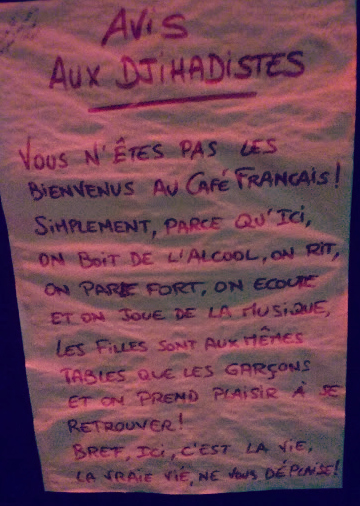 AVIS
AUX DJIHADISTES
VOUS N'ÊTES PAS LES
BIENVENUS AU CAFÉ FRANCAIS!
SIMPLEMENT, PARCE QU'ICI,
ON BOIT DE L'ALCOOL, ON RIT,
ON PARLE FORT, ON ECOUTE
ET ON JOUE DE LA MUSIQUE,
LES FILLES SONT AUX MÊMES
TABLES QUE LES GARÇONS
ET ON PREND PLAISIR À SE
RETROUVER!
BREF, ICI, C'EST LA VIE,
LA VRAIE VIE, NE VOUS DÉPLAISE!